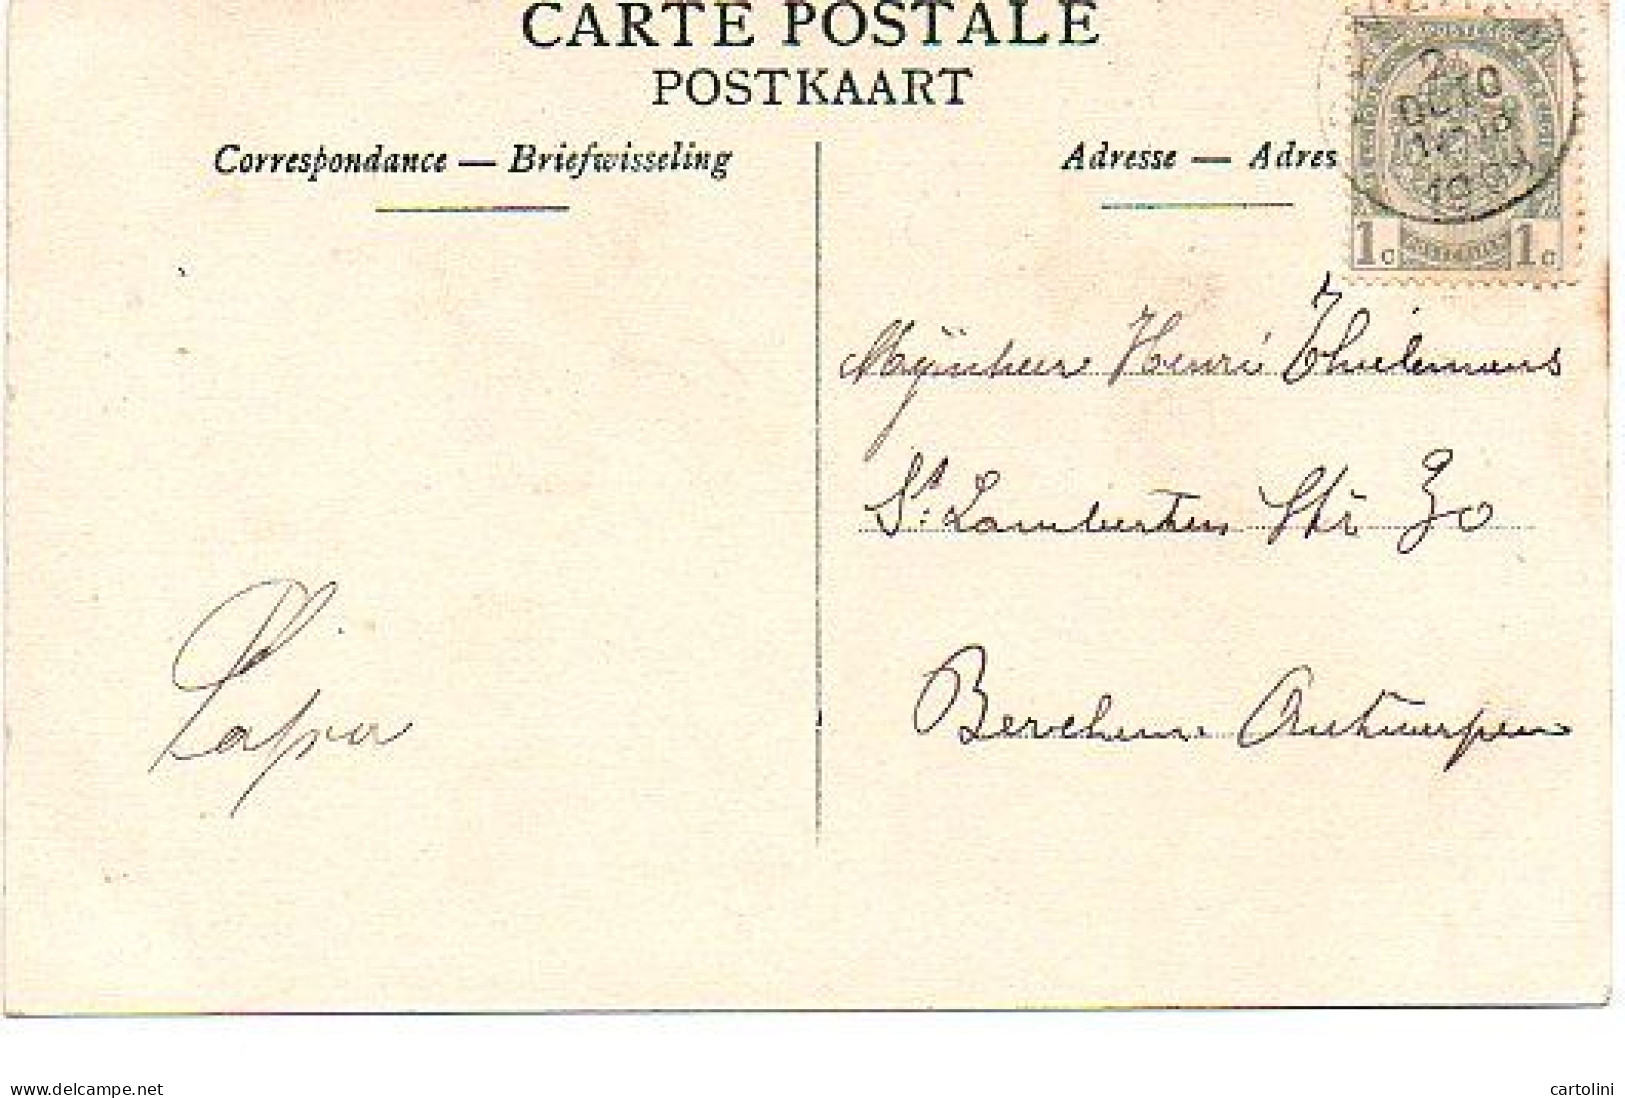 CARTE POSTALE
POSTKAART
Correspondance — Briefwisseling
Adresse — Adres
1c 1c
Mÿnheer Henri Thielemans
St. Lambertus Str 30
Berchem Antwerpen
www.delcampe.net
cartolini